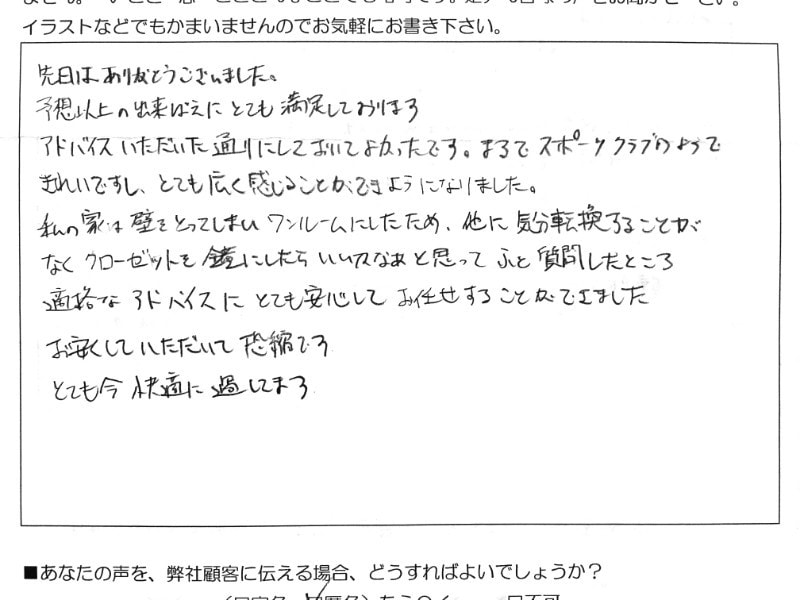 イラストなどでもかまいませんのでお気軽にお書き下さい。
先日はありがとうございました。
予想以上の出来ばえにとても満足しております
アドバイスいただいた通りにしておいてよかったです。まるでスポーツクラブのようで
きれいですし、とても広く感じることができようになりました。
私の家は壁をとってしまいワンルームにしたため、他に気分転換することが
なくクローゼットを鏡にしたらいいスなぁと思ってふと質問したところ
適格なアドバイスにとても安心してお任せすることができました
お安くしていただいて恐縮です
とても今快適に過してます
■あなたの声を、弊社顧客に伝える場合、どうすればよいでしょうか？